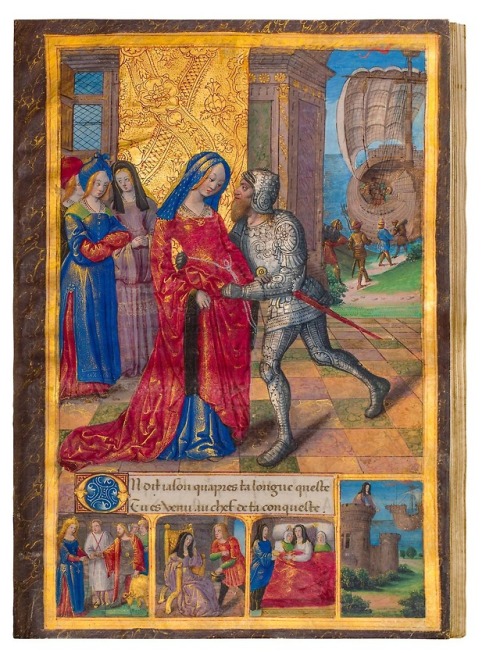 On dit iason quapres ta longue queste
Tu es venu au chef de ta conqueste